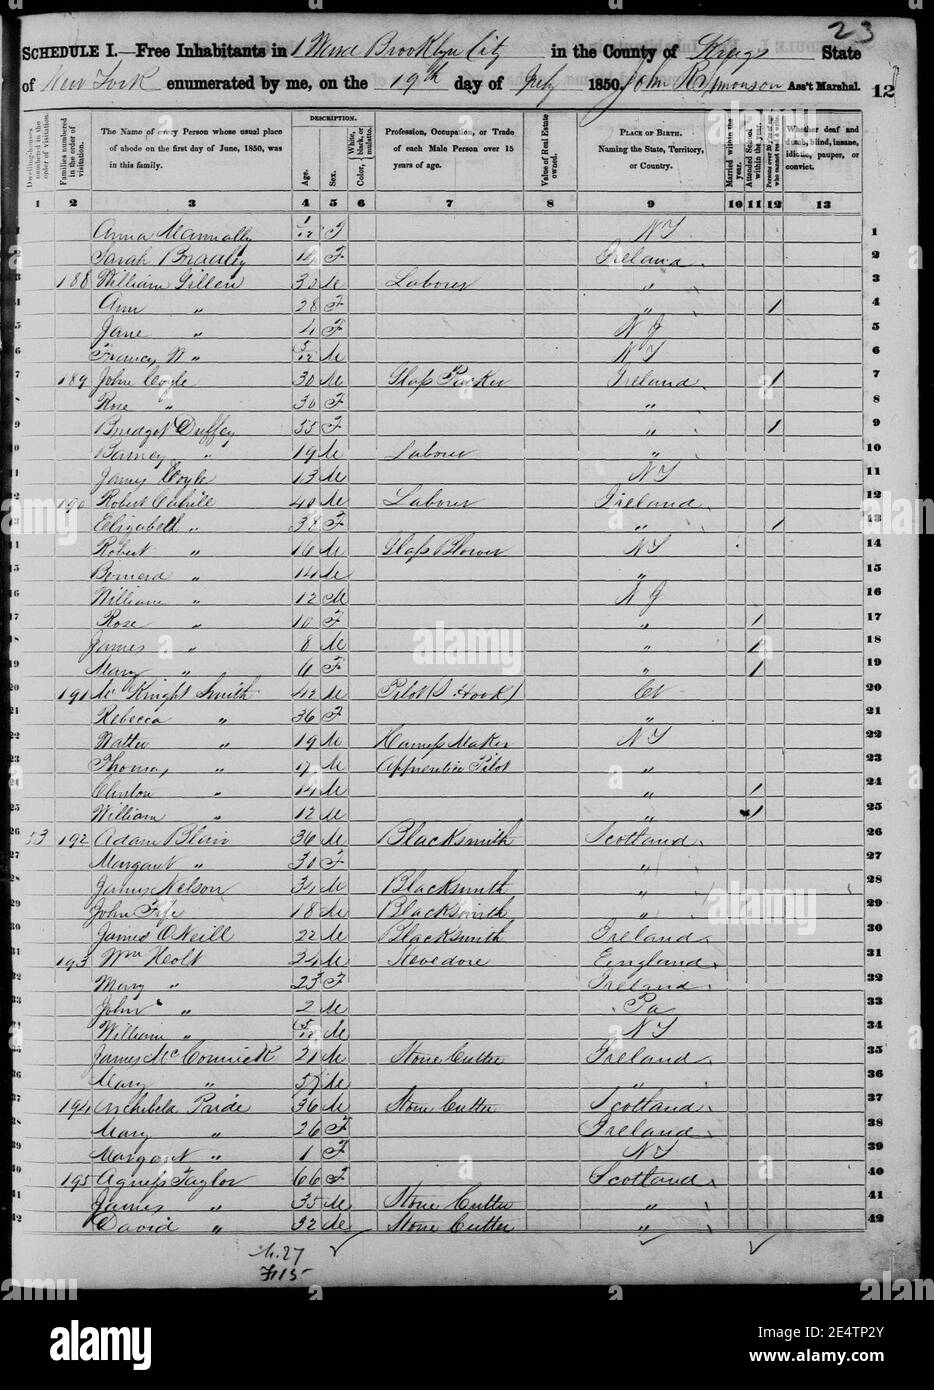 23
SCHEDULE I.—Free Inhabitants in 1 Ward Brooklyn City in the County of Kings State
of New York enumerated by me, on the 19th day of July 1850. John Ass't Marshal. 12
Dwelling-houses numbered in the order of visitation.
Families numbered in the order of visitation.
The Name of every Person whose usual place of abode on the first day of June, 1850, was in this family.
DESCRIPTION.
Age.
Sex.
Color, White, black, or mulatto.
Profession, Occupation, or Trade of each Male Person over 15 years of age.
Value of Real Estate owned.
PLACE OF BIRTH. Naming the State, Territory, or Country.
Married within the year.
Attended School within the year.
Persons over 20 y'rs of age who cannot read & write.
Whether deaf and dumb, blind, insane, idiotic, pauper, or convict.
1 2 3 4 5 6 7 8 9 10 11 12 13
Anna 1/12 F NY 1
Sarah Bradley 14 F Ireland 2
188 William Gillen 30 M Laborer " 3
Ann " 28 F " 1 4
Jane " 4 F NJ 5
Francy W " 5/12 M NY 6
189 John Coyle 30 M Glass Packer Ireland 1 7
Rose " 30 F " 8
Bridget Duffey 55 F " 1 9
Barney " 19 M Laborer " 10
James Coyle 13 M NY 11
190 Robert Cahill 40 M Laborer Ireland 12
Elizabeth " 38 F " 1 13
Robert " 16 M Glass Blower NY 14
" 14 M " 15
William " 12 M NJ 16
Rose " 10 F " 1 17
James " 8 M " 1 18
Mary " 6 F " 1 19
191 McKnight Smith 42 M Pilot (S. Hook) Ct 20
Rebecca " 36 F " 21
" 19 M Harness Maker NY 22
Thomas " 17 M Apprentice Pilot " 23
Clinton " 14 M " 1 24
William " 12 M " 1 25
53 192 Adam Blair 36 M Blacksmith Scotland 26
Margaret " 30 F " 27
James Nelson 34 M Blacksmith " 28
John Fife 18 M Blacksmith " 29
James O'Neill 22 M Blacksmith Ireland 30
193 Wm Holt 24 M Stevedore England 31
Mary " 23 F Ireland 32
John " 2 M Pa 33
William " 5/12 M NY 34
James McCormick 21 M Stone Cutter Ireland 35
Mary " M " 36
194 Archibela Pride 36 M Stone Cutter Scotland 37
Mary " 26 F Ireland 38
Margaret " 1 F NY 39
195 Agness Taylor 66 F Scotland 40
James " 35 M Stone Cutter " 41
David " 32 M Stone Cutter " 42
M. 27
F. 15
alamy
alamy
alamy
alamy
Image ID: 2E4TP2Y
www.alamy.com